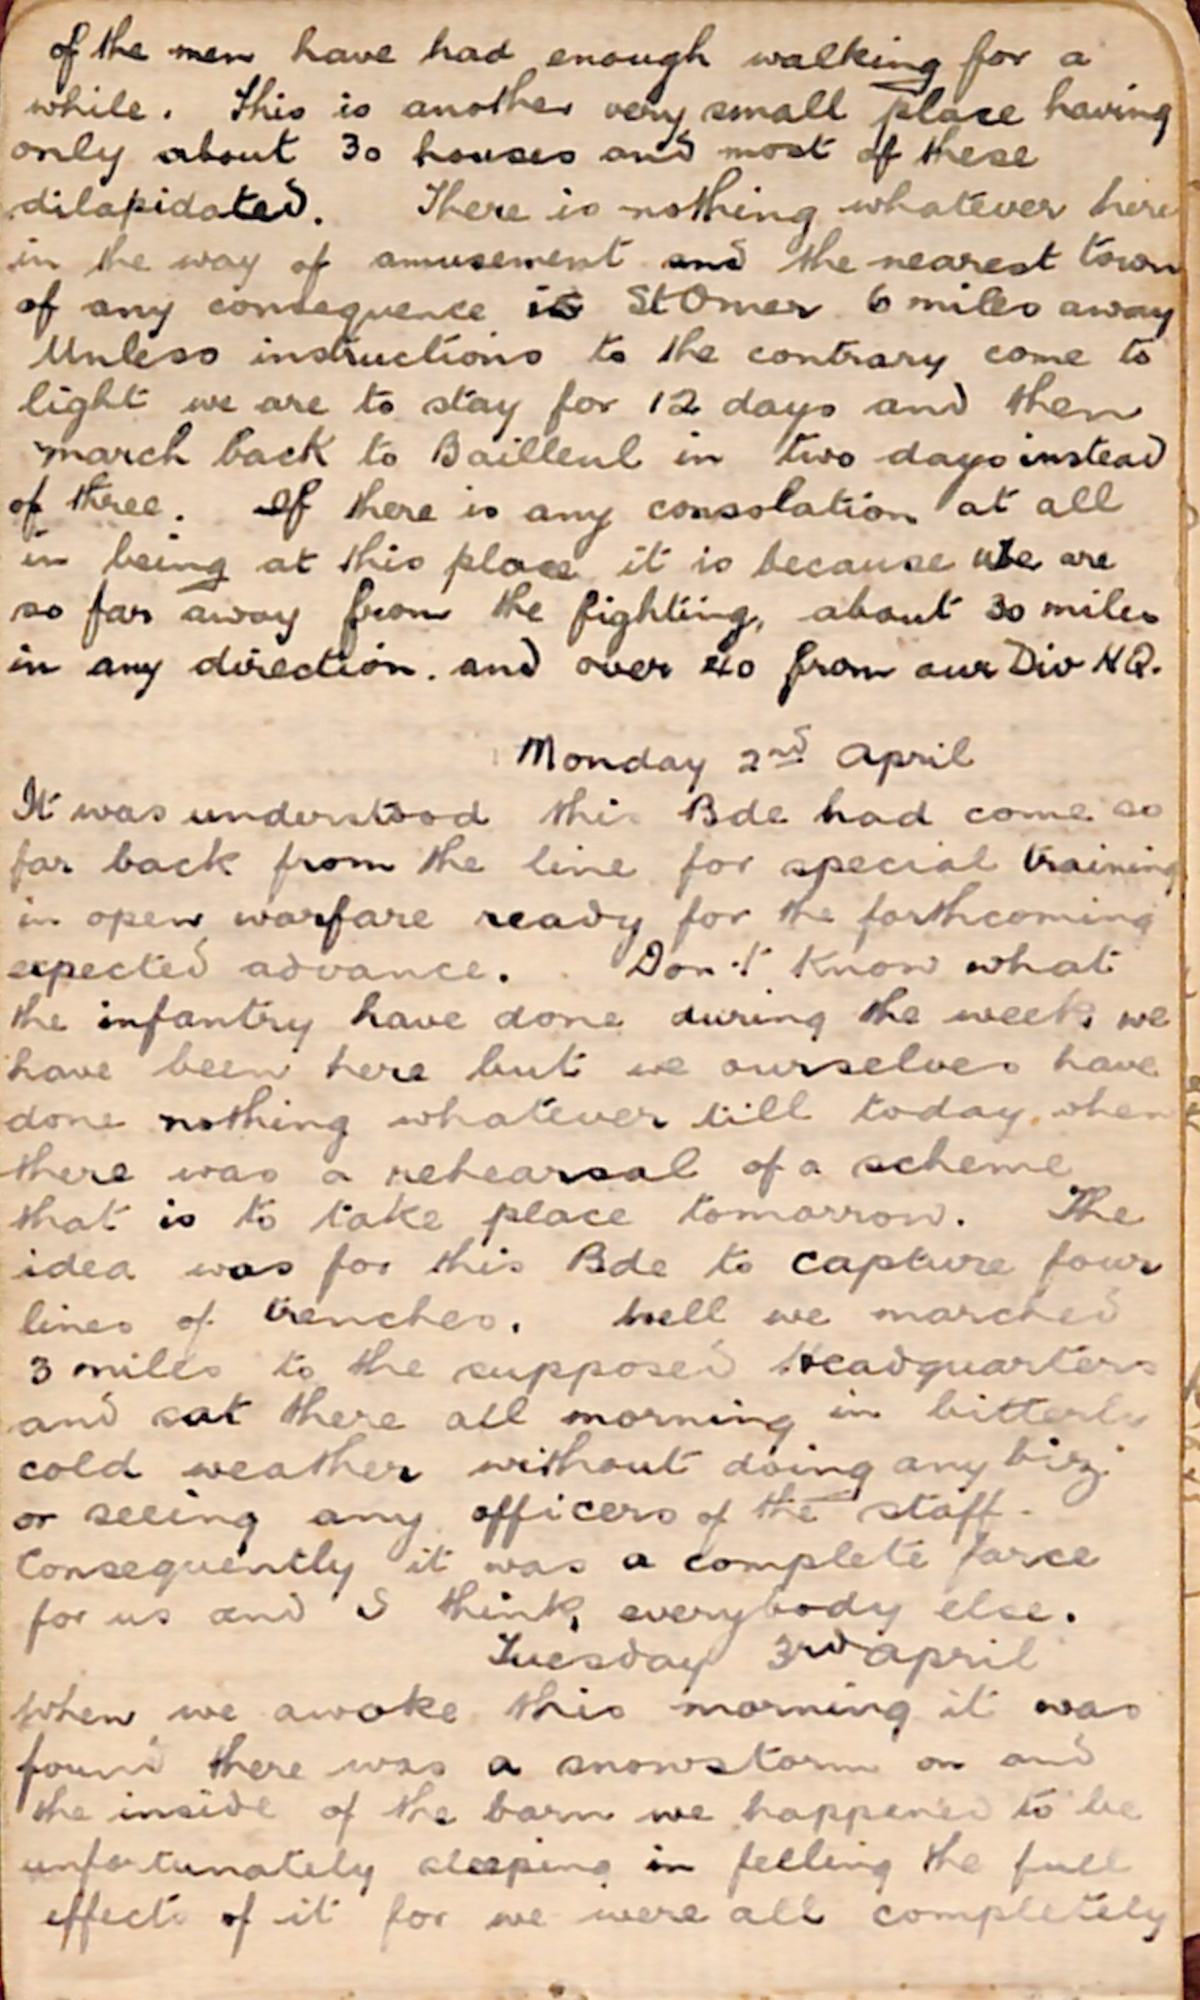 of the men have had enough walking for a
while. This is another very small place having
only about 30 houses and most of these
dilapidated. There is nothing whatever here
in the way of amusement and the nearest town
of any consequence is St Omer 6 miles away
Unless instructions to the contrary come to
light we are to stay for 12 days and then
march back to Bailleul in two days instead
of three. If there is any consolation at all
in being at this place it is because we are
so far away from the fighting, about 30 miles
in any direction. and over 40 from our Div HQ.
Monday 2nd April
It was understood this Bde had come so
far back from the line for special training
in open warfare ready for the forthcoming
expected advance. Don't know what
the infantry have done during the week, we
have been here but we ourselves have
done nothing whatever till today. when
there was a rehearsal of a scheme
that is to take place tomorrow. The
idea was for this Bde to capture four
lines of trenches. Well we marched
3 miles to the supposed Headquarters
and sat there all morning in bitterly
cold weather without doing any biz.
or seeing any officers of the staff.
Consequently it was a complete farce
for us and I think, everybody else.
Tuesday 3rd April
When we awoke this morning it was
found there was a snowstorm on and
the inside of the barn we happened to be
unfortunately sleeping in felling the full
effects of it for we were all completely